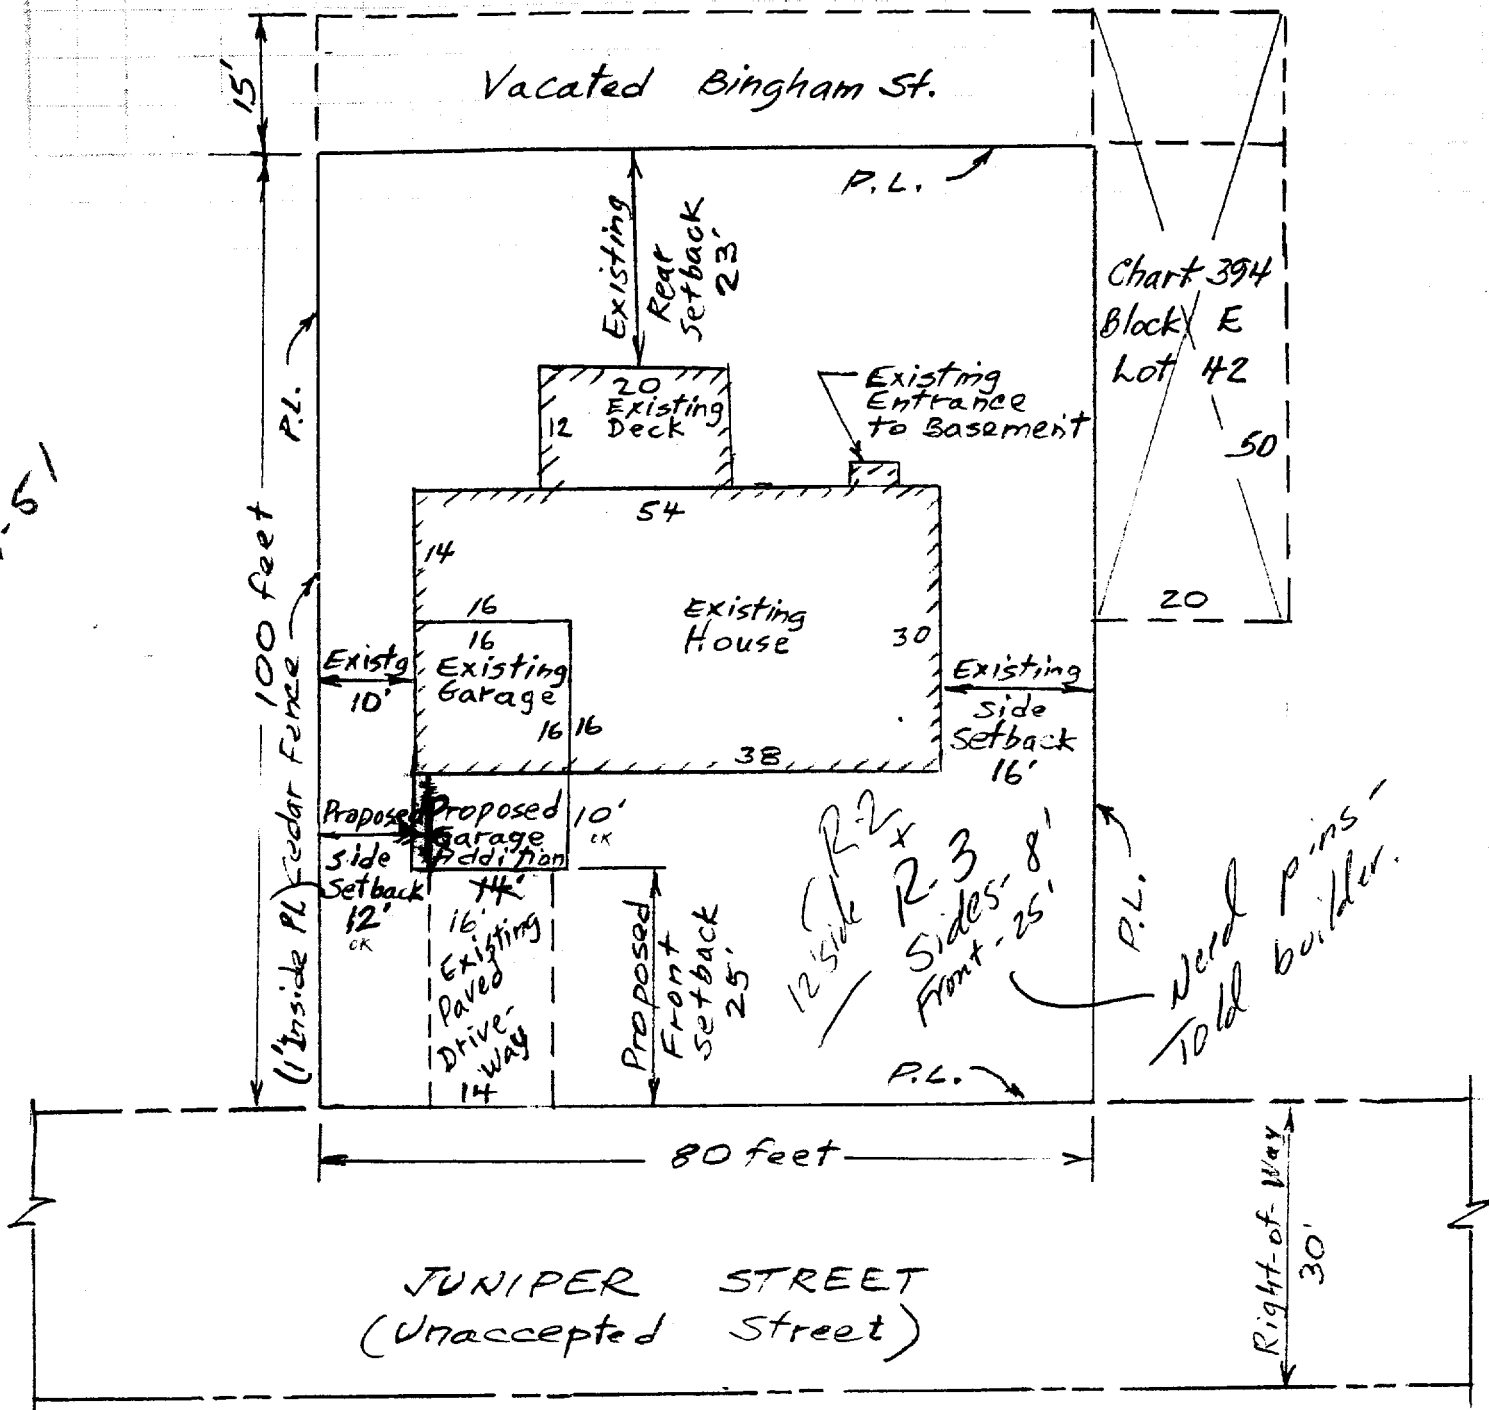 15'
Vacated Bingham St.
P.L.
Existing
Rear
Setback
23'
Chart 394
Block E
Lot 42
50
20
P.L.
20
Existing
Deck
12
Existing
Entrance
to Basement
54
14
100 feet
(1' Inside PL) Cedar Fence
16
16
Existing
Garage
16
16
Existing
House
30
38
Existg
10'
Existing
Side
Setback
16'
Proposed
Side
Setback
12'
OK
Proposed
Garage
Addition
10'
OK
14'
16'
Existing
Paved
Drive-
way
14
Proposed
Front
Setback
25'
R-2
12 side
R-3
Sides - 8'
Front - 25'
P.L.
Need pins -
Told builder.
P.L.
80 feet
Right-of-Way
30'
JUNIPER STREET
(Unaccepted Street)